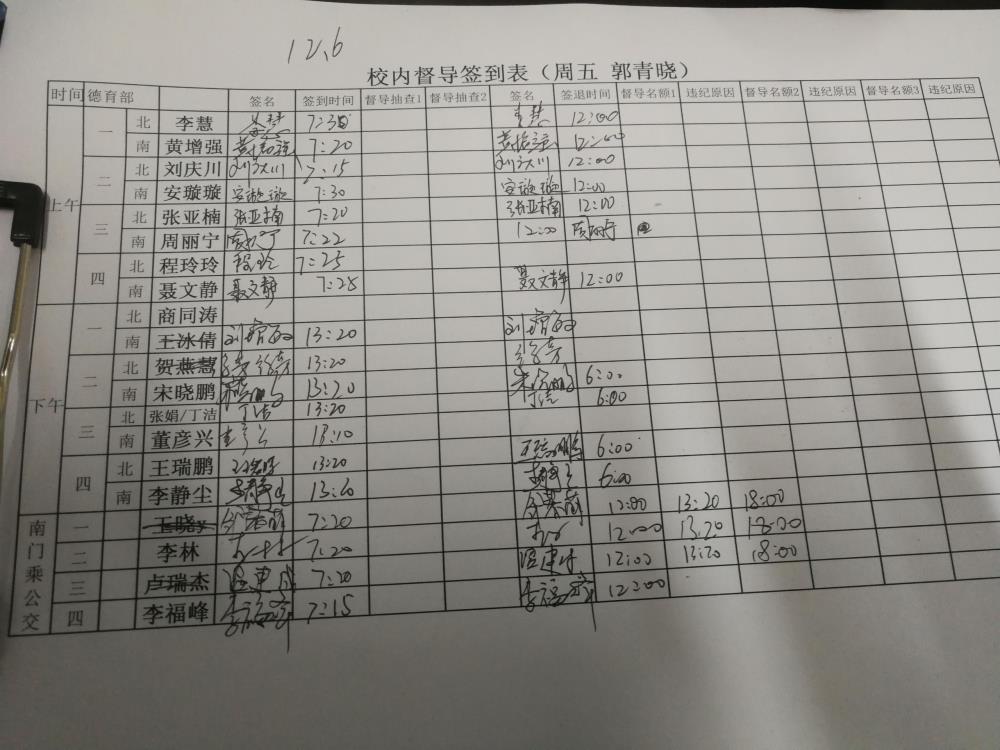 12.6
校内督导签到表（周五 郭青晓）
时间 德育部 签名 签到时间 督导抽查1 督导抽查2 签名 签退时间 督导名额1 违纪原因 督导名额2 违纪原因 督导名额3 违纪原因
上午 一 北 李慧 李慧 7:30 李慧 12:00
南 黄增强 黄增强 7:20 黄增强 12:00
二 北 刘庆川 刘庆川 7:15 刘庆川 12:00
南 安璇璇 安璇璇 7:30 安璇璇 12:00
三 北 张亚楠 张亚楠 7:20 张亚楠 12:00
南 周丽宁 周丽宁 7:22 12:00 周丽宁
四 北 程玲玲 程玲 7:25
南 聂文静 聂文静 7:28 聂文静 12:00
下午 一 北 商同涛
南 王冰倩 13:20
二 北 贺燕慧 13:20
南 宋晓鹏 13:20 宋晓鹏 6:00
三 北 张娟/丁洁 丁洁 13:20 丁洁 6:00
南 董彦兴 董彦兴 13:10
四 北 王瑞鹏 王瑞鹏 13:20 王瑞鹏 6:00
南 李静尘 李静尘 13:20 6:00
南门乘公交 一 王晓 7:20 12:00 13:20 18:00
二 李林 李林 7:20 12:00 13:20 18:00
三 卢瑞杰 7:20 12:00 13:20 18:00
四 李福峰 李福峰 7:15 李福峰 12:00